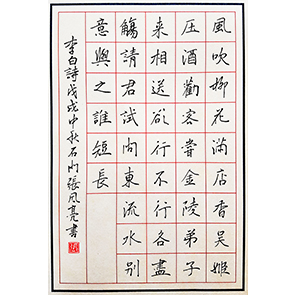 風吹柳花滿店香吳姬
压酒勸客嘗金陵弟子
來相送欲行不行各盡
觴請君試問東流水别
意與之誰短長
李白詩戊戌中秋石门張风亮書